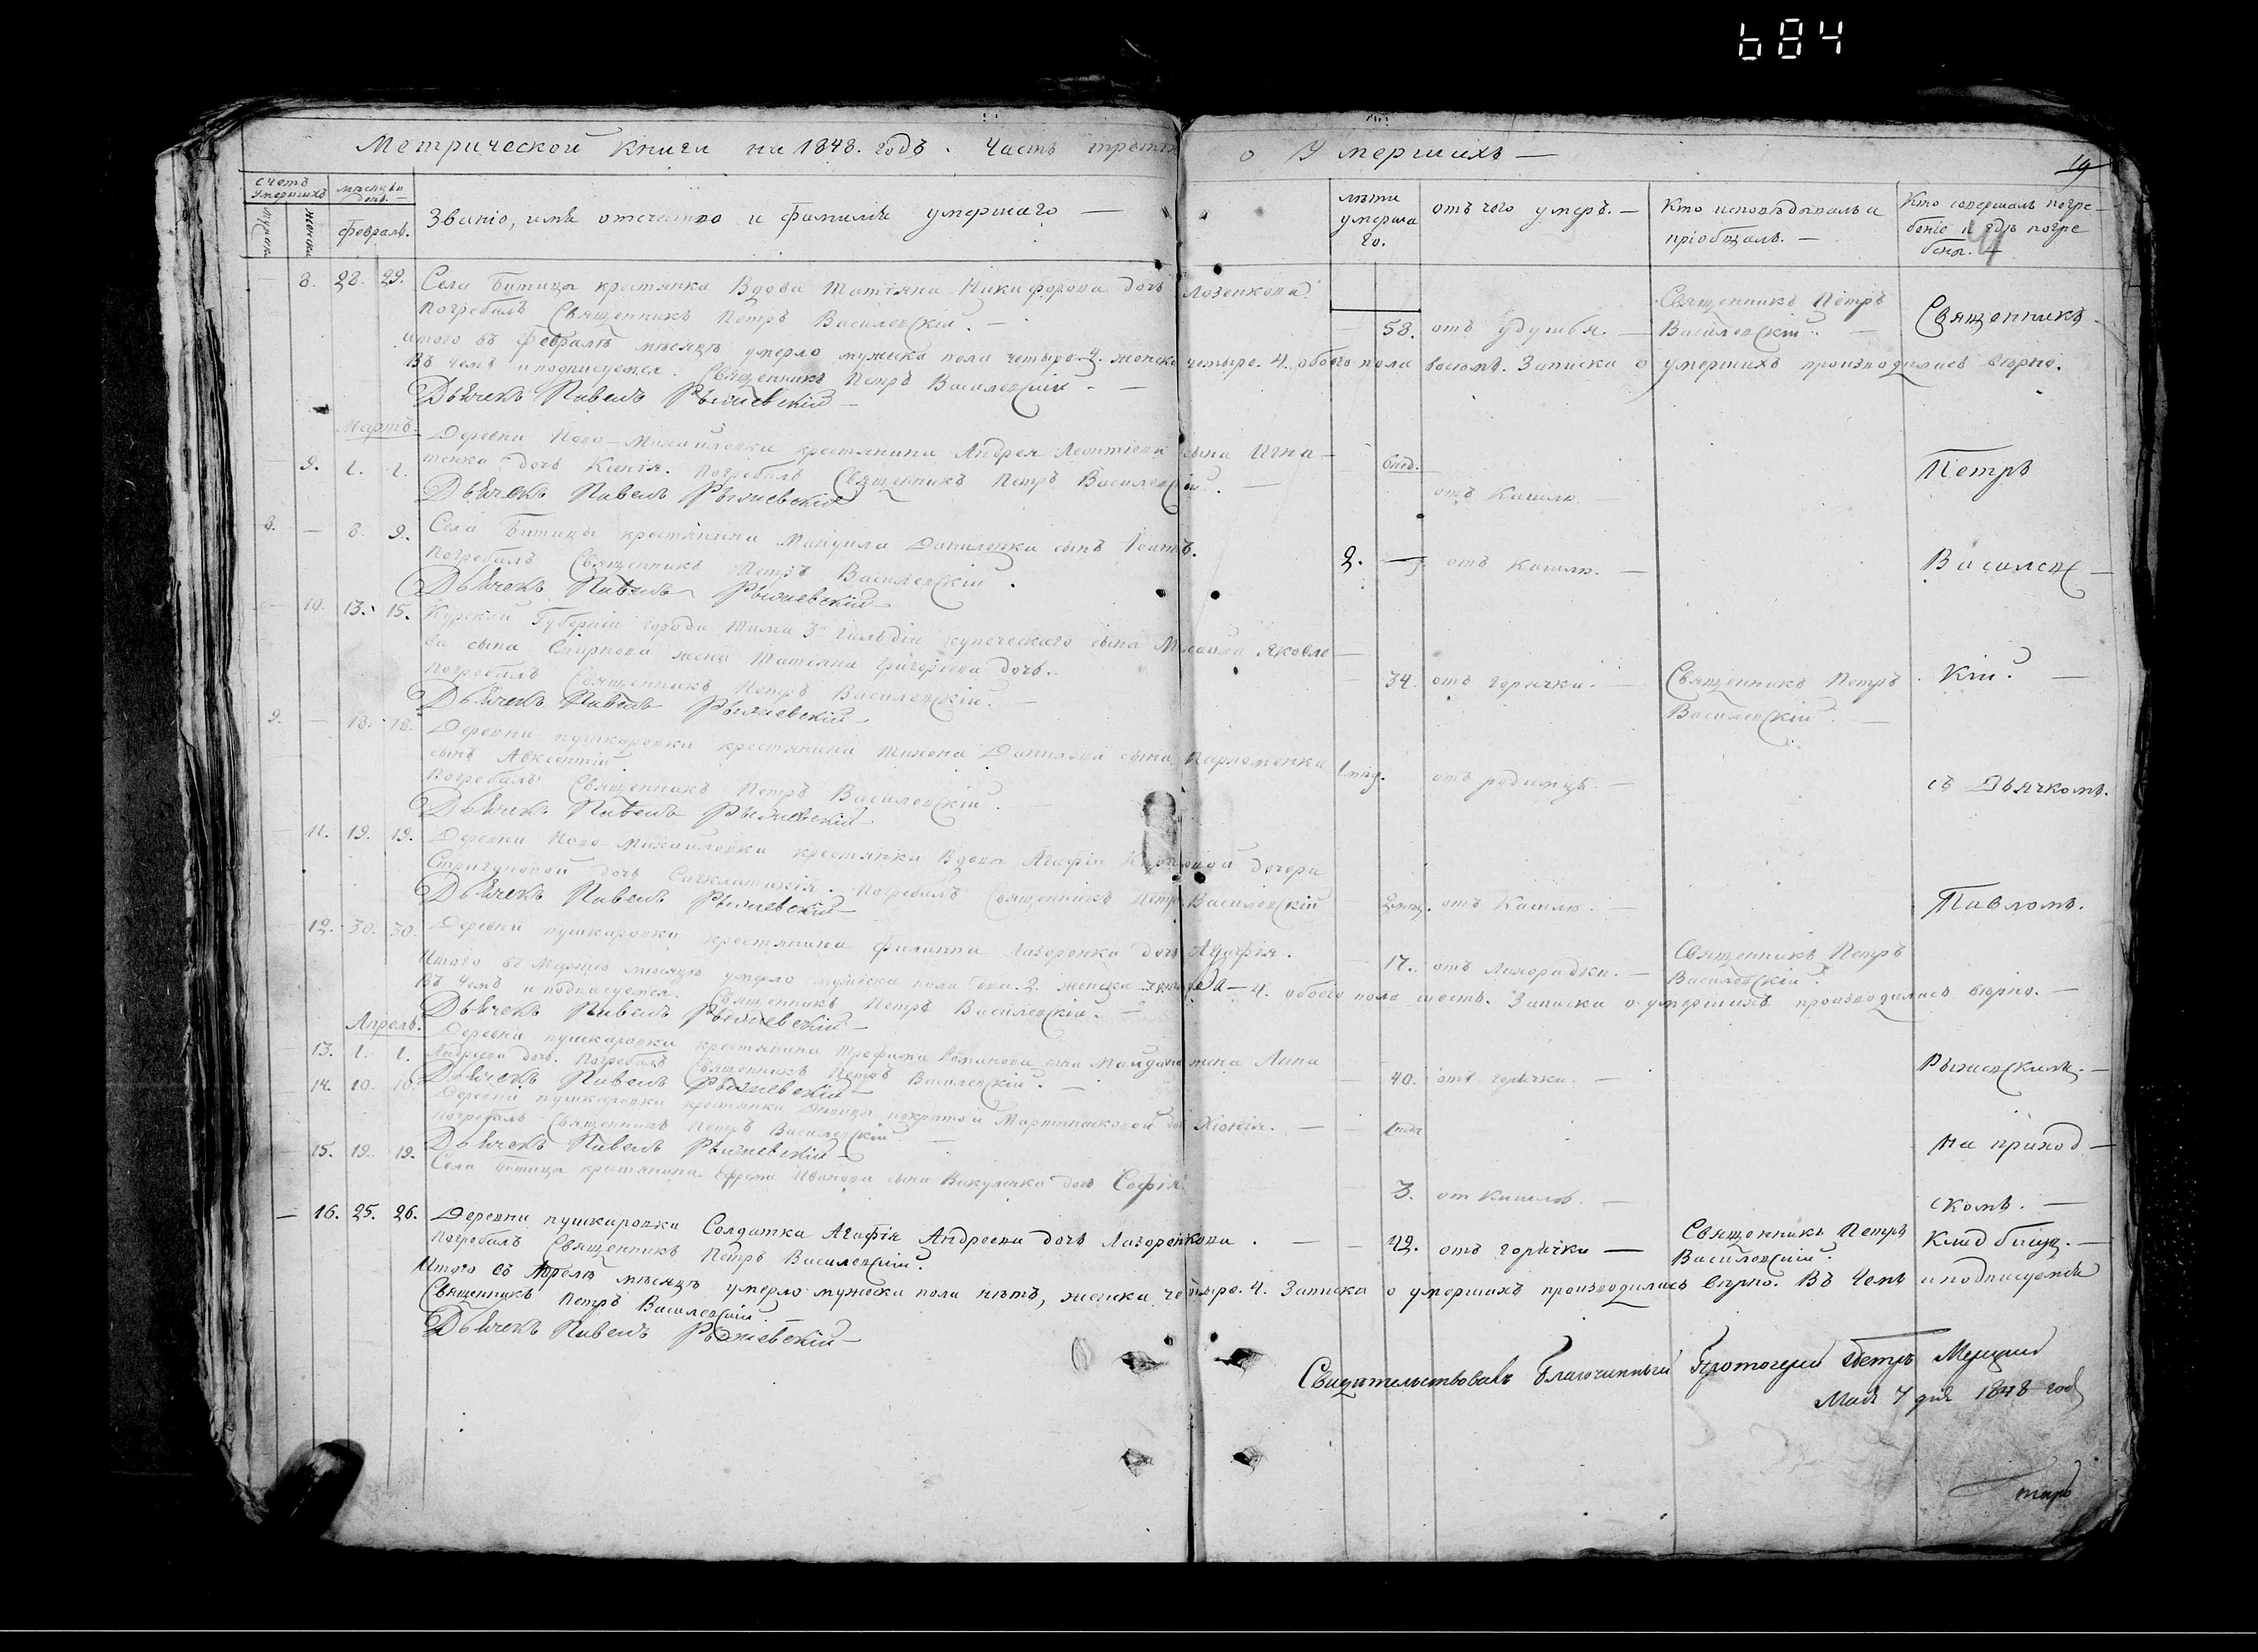 684
Метрической книги на 1848. годъ. Часть третія о Умершихъ —
19
счетъ умершихъ
мужска
женска
мѣсяцъ и день.
Февраль.
Званіо, имя отечество и фамилія умершаго —
лѣта умершаго.
отъ чего умеръ. —
Кто исповѣдывалъ и пріобщалъ. —
Кто совершалъ погребеніе и гдѣ погребены. —
8. 28. 29. Села Битицы крестянка Вдова Татіяна Никифорова дочь Лозенкова
58. отъ удушья. — Священникъ Петръ Василевскій. —
Погребалъ Священникъ Петръ Василевскій. —
Итого въ Февралѣ мѣсяцѣ умерло мужска пола четыре 4. женска четыре. 4. обоего пола восемь. Записка о умершихъ производилась вѣрно.
Въ чемъ и подписуемся. Священникъ Петръ Василевскій. —
Дьячекъ Павелъ Рыжевскій —
Мартъ.
9. 1. 1. Деревни Ново-Михайловки крестянина Андрея Леонтіева сына Игна-
тенка дочь Ксенія. Погребалъ Священникъ Петръ Василевскій. —
отъ Кашлю. —
Дьячекъ Павелъ Рыжевскій
8. — 8. 9. Села Битицы крестянина Мануила Даниленка сынъ Іоаннъ.
2. — отъ Кашлю. —
Погребалъ Священникъ Петръ Василевскій.
Дьячекъ Павелъ Рыжевскій
— 10. 13. 15. Курской Губерніи города Тима 3й гильдіи купеческаго сына Михаила Яковле-
ва сына Смирнова жена Татіяна Григоріева дочь.
34. отъ горячки. — Священникъ Петръ Василевскій. —
Погребалъ Священникъ Петръ Василевскій. —
Дьячекъ Павелъ Рыжевскій —
9. — 18. 18. Деревни пушкаровки крестянина Тихона Данилова сына Пархоменка
сынъ Авксентій
отъ родимцѣ. —
Погребалъ Священникъ Петръ Василевскій. —
Дьячекъ Павелъ Рыжевскій —
— 11. 19. 19. Деревни Ново-Михайловки крестянка Вдова Агафіи дочери
Стригуновой дочь Сигклитикія. Погребалъ Священникъ Петръ Василевскій
отъ Кашлю. —
Дьячекъ Павелъ Рыжевскій —
12. 30. 30. Деревни пушкаровки крестянина Филиппа Лазоренка дочь Агафія.
17. отъ Лихорадки. — Священникъ Петръ Василевскій.
Итого въ Мартѣ мѣсяцѣ умерло мужска пола два. 2. женска — 4. обоего пола шесть. Записка о умершихъ производилась вѣрно. —
Въ чемъ и подписуемся. Священникъ Петръ Василевскій. —
Дьячекъ Павелъ Рыжевскій —
Апрель.
13. 1. 1. Деревни пушкаровки крестянина Трофима Романова сына жена Анна
Андреева дочь. Погребалъ Священникъ Петръ Василевскій. —
40. отъ горячки. —
Дьячекъ Павелъ Рыжевскій —
14. 10. 10. Деревни пушкаровки крестянки Дѣвицы Мартыненковой дочь Хіонія. —
Погребалъ Священникъ Петръ Василевскій —
Дьячекъ Павелъ Рыжевскій —
15. 19. 19. Села Битицы крестянина Ефрема Иванова сына Вакуленка дочь Софія.
3. от кашлю. —
— 16. 25. 26. Деревни пушкаровки Солдатка Агафія Андреева дочь Лазоренкова. —
42. отъ горячки — Священникъ Петръ Василевскій.
Погребалъ Священникъ Петръ Василевскій.
Итого въ Апрелѣ мѣсяцѣ умерло мужска пола нѣтъ, женска четыре. 4. Записка о умершихъ производилась вѣрно. Въ чемъ и подписуемся
Священникъ Петръ Василевскій
Дьячекъ Павелъ Рыжевскій —
Священникъ
Петръ
Василевс-
кій. —
съ Дьячкомъ.
Павломъ.
Рыжевскимъ. —
на приход-
скомъ. —
Кладбищѣ. —
Свидѣтельствовалъ Благочинный Протоіерей Петръ
Мая 7 дня 1848 года